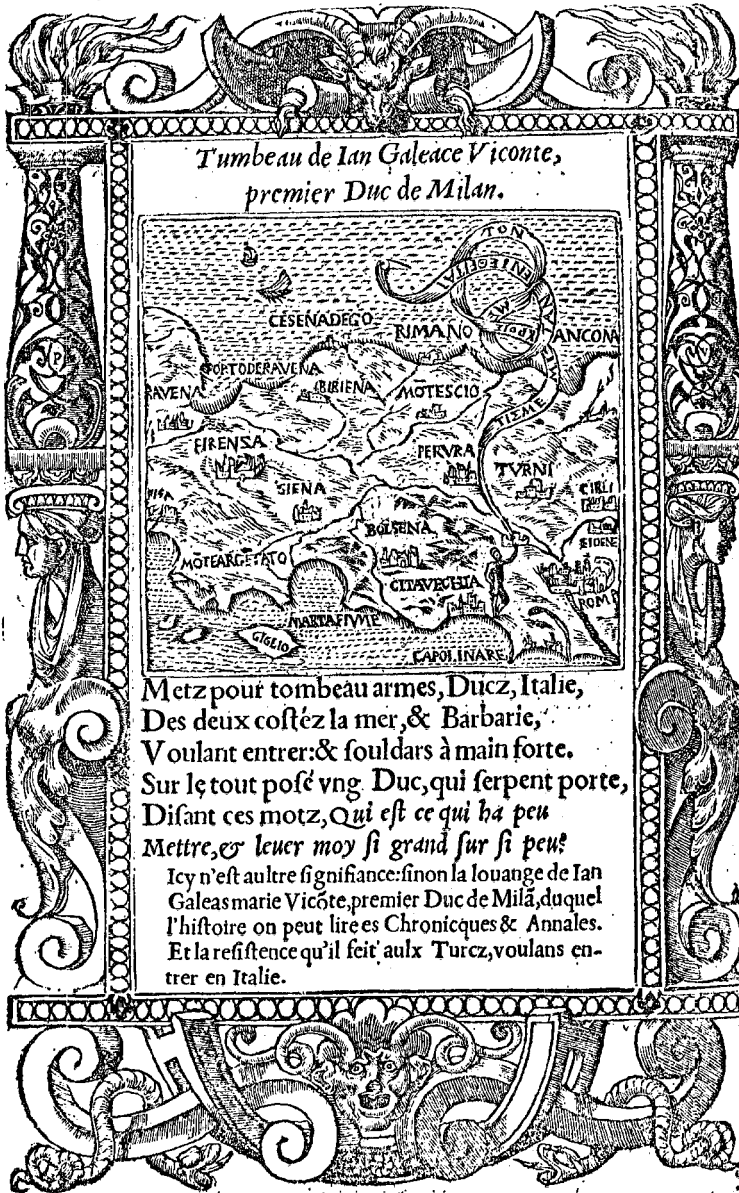 Tumbeau de Ian Galeace Viconte,
premier Duc de Milan.
TON
CESENADEGO
RIMANO
ANCONA
PORTODERAVENA
RAVENA
BIBIENA
MOTESCIO
TISME
FIRENSA
PERURA
TVRNI
SIENA
CIRLI
BOLSENA
MOTEARGETATO
CITAVECHIA
ROMA
MARTAFIVME
GIGLIO
CAPOLINARE
Metz pour tombeau armes, Ducz, Italie,
Des deux costéz la mer, & Barbarie,
Voulant entrer: & souldars à main forte.
Sur le tout posé vng Duc, qui serpent porte,
Disant ces motz, Qui est ce qui ha peu
Mettre, & leuer moy si grand sur si peu?
Icy n'est aultre signifiance: sinon la louange de Ian
Galeas marie Vicõte, premier Duc de Milã, duquel
l'histoire on peut lire es Chronicques & Annales.
Et la resistence qu'il feit aulx Turcz, voulans en-
trer en Italie.